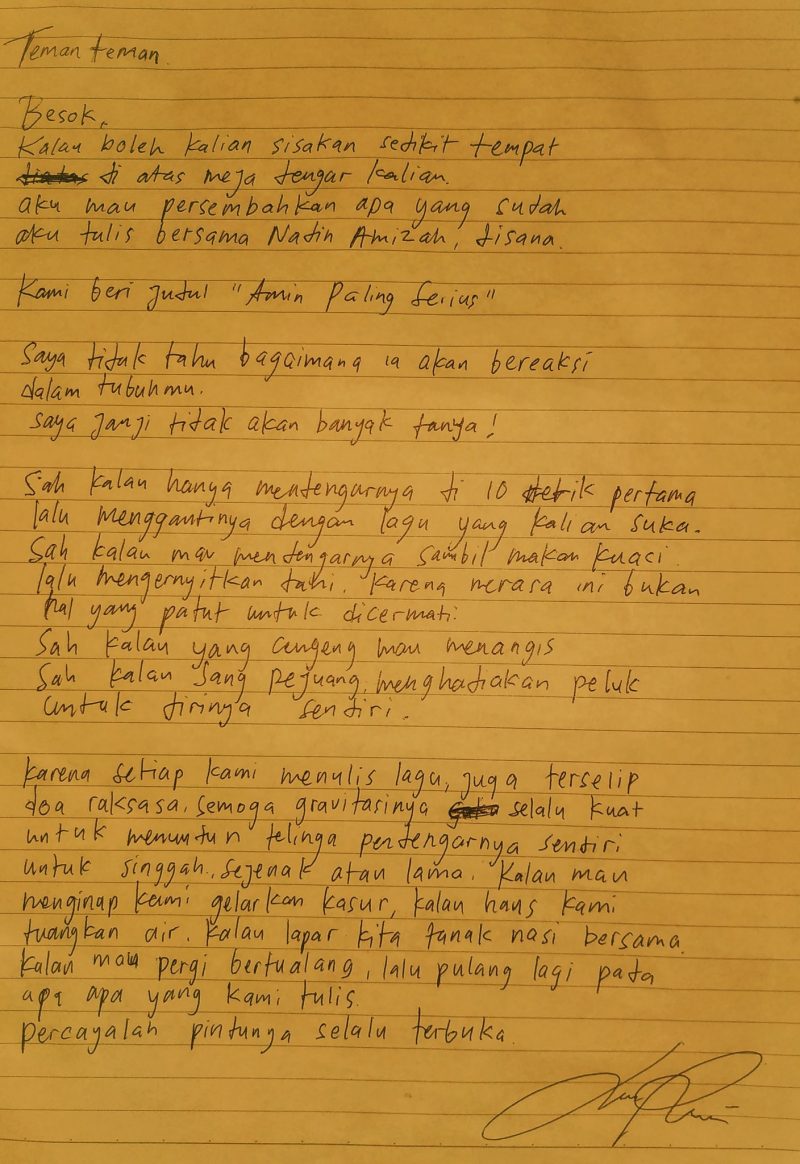 Teman teman.
Besok,
Kalau boleh kalian sisakan sedikit tempat
di atas meja dengar kalian.
aku mau persembahkan apa yang sudah
aku tulis bersama Nadin Amizah, disana.
Kami beri judul "Amin Paling Serius"
Saya tidak tahu bagaimana ia akan bereaksi
dalam tubuhmu.
Saya janji tidak akan banyak tanya!
Sah kalau hanya mendengarnya di 10 detik pertama
lalu menggantinya dengan lagu yang kalian suka.
Sah kalau mau mendengarnya sambil makan kuaci.
lalu mengernyitkan dahi. Karena merasa ini bukan
hal yang patut untuk dicermati.
Sah kalau yang cengeng mau menangis
Sah kalau sang pejuang menghadiakan peluk
untuk dirinya sendiri.
Karena setiap kami menulis lagu, juga terselip
doa raksasa, semoga gravitasinya selalu kuat
untuk menuntun telinga pendengarnya sendiri
untuk singgah, sejenak atau lama. Kalau mau
menginap kami gelarkan kasur, kalau haus kami
tuangkan air. Kalau lapar kita tanak nasi bersama.
Kalau mau pergi bertualang, lalu pulang lagi pada
apa apa yang kami tulis.
percayalah pintunya selalu terbuka.